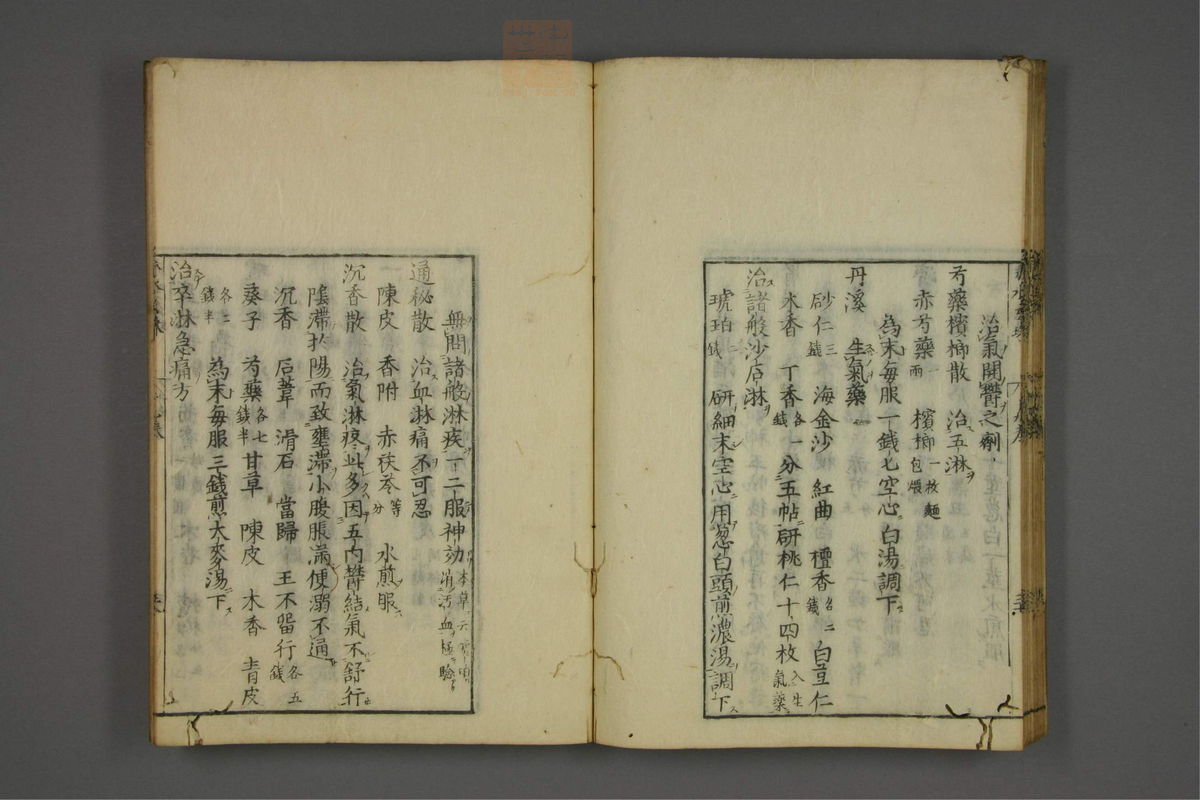 治氣開欝之劑
芍藥檳榔散 治五淋
赤芍藥一兩 檳榔一枚麵包煨
為末每服一錢七空心白湯調下
丹溪 生氣藥
砂仁三錢 海金沙 紅曲 檀香各二錢 白荳仁
木香 丁香各一錢 分五帖研桃仁十四枚入生氣藥
治諸般沙石淋
琥珀二錢 研細末空心用葱白頭煎濃湯調下
無問諸般淋疾一二服神効
通秘散 治血淋痛不可忍
陳皮 香附 赤茯苓等分 水煎服
沉香散 治氣淋疼此多因五内欝結氣不舒行
陰滯扵陽而致壅滯小腹脹滿便溺不通
沉香 石葦 滑石 當歸 王不留行各五錢
葵子 芍藥各七錢半 甘草 陳皮 木香 青皮
各二錢半 為末每服三錢煎大麥湯下
治卒淋急痛方